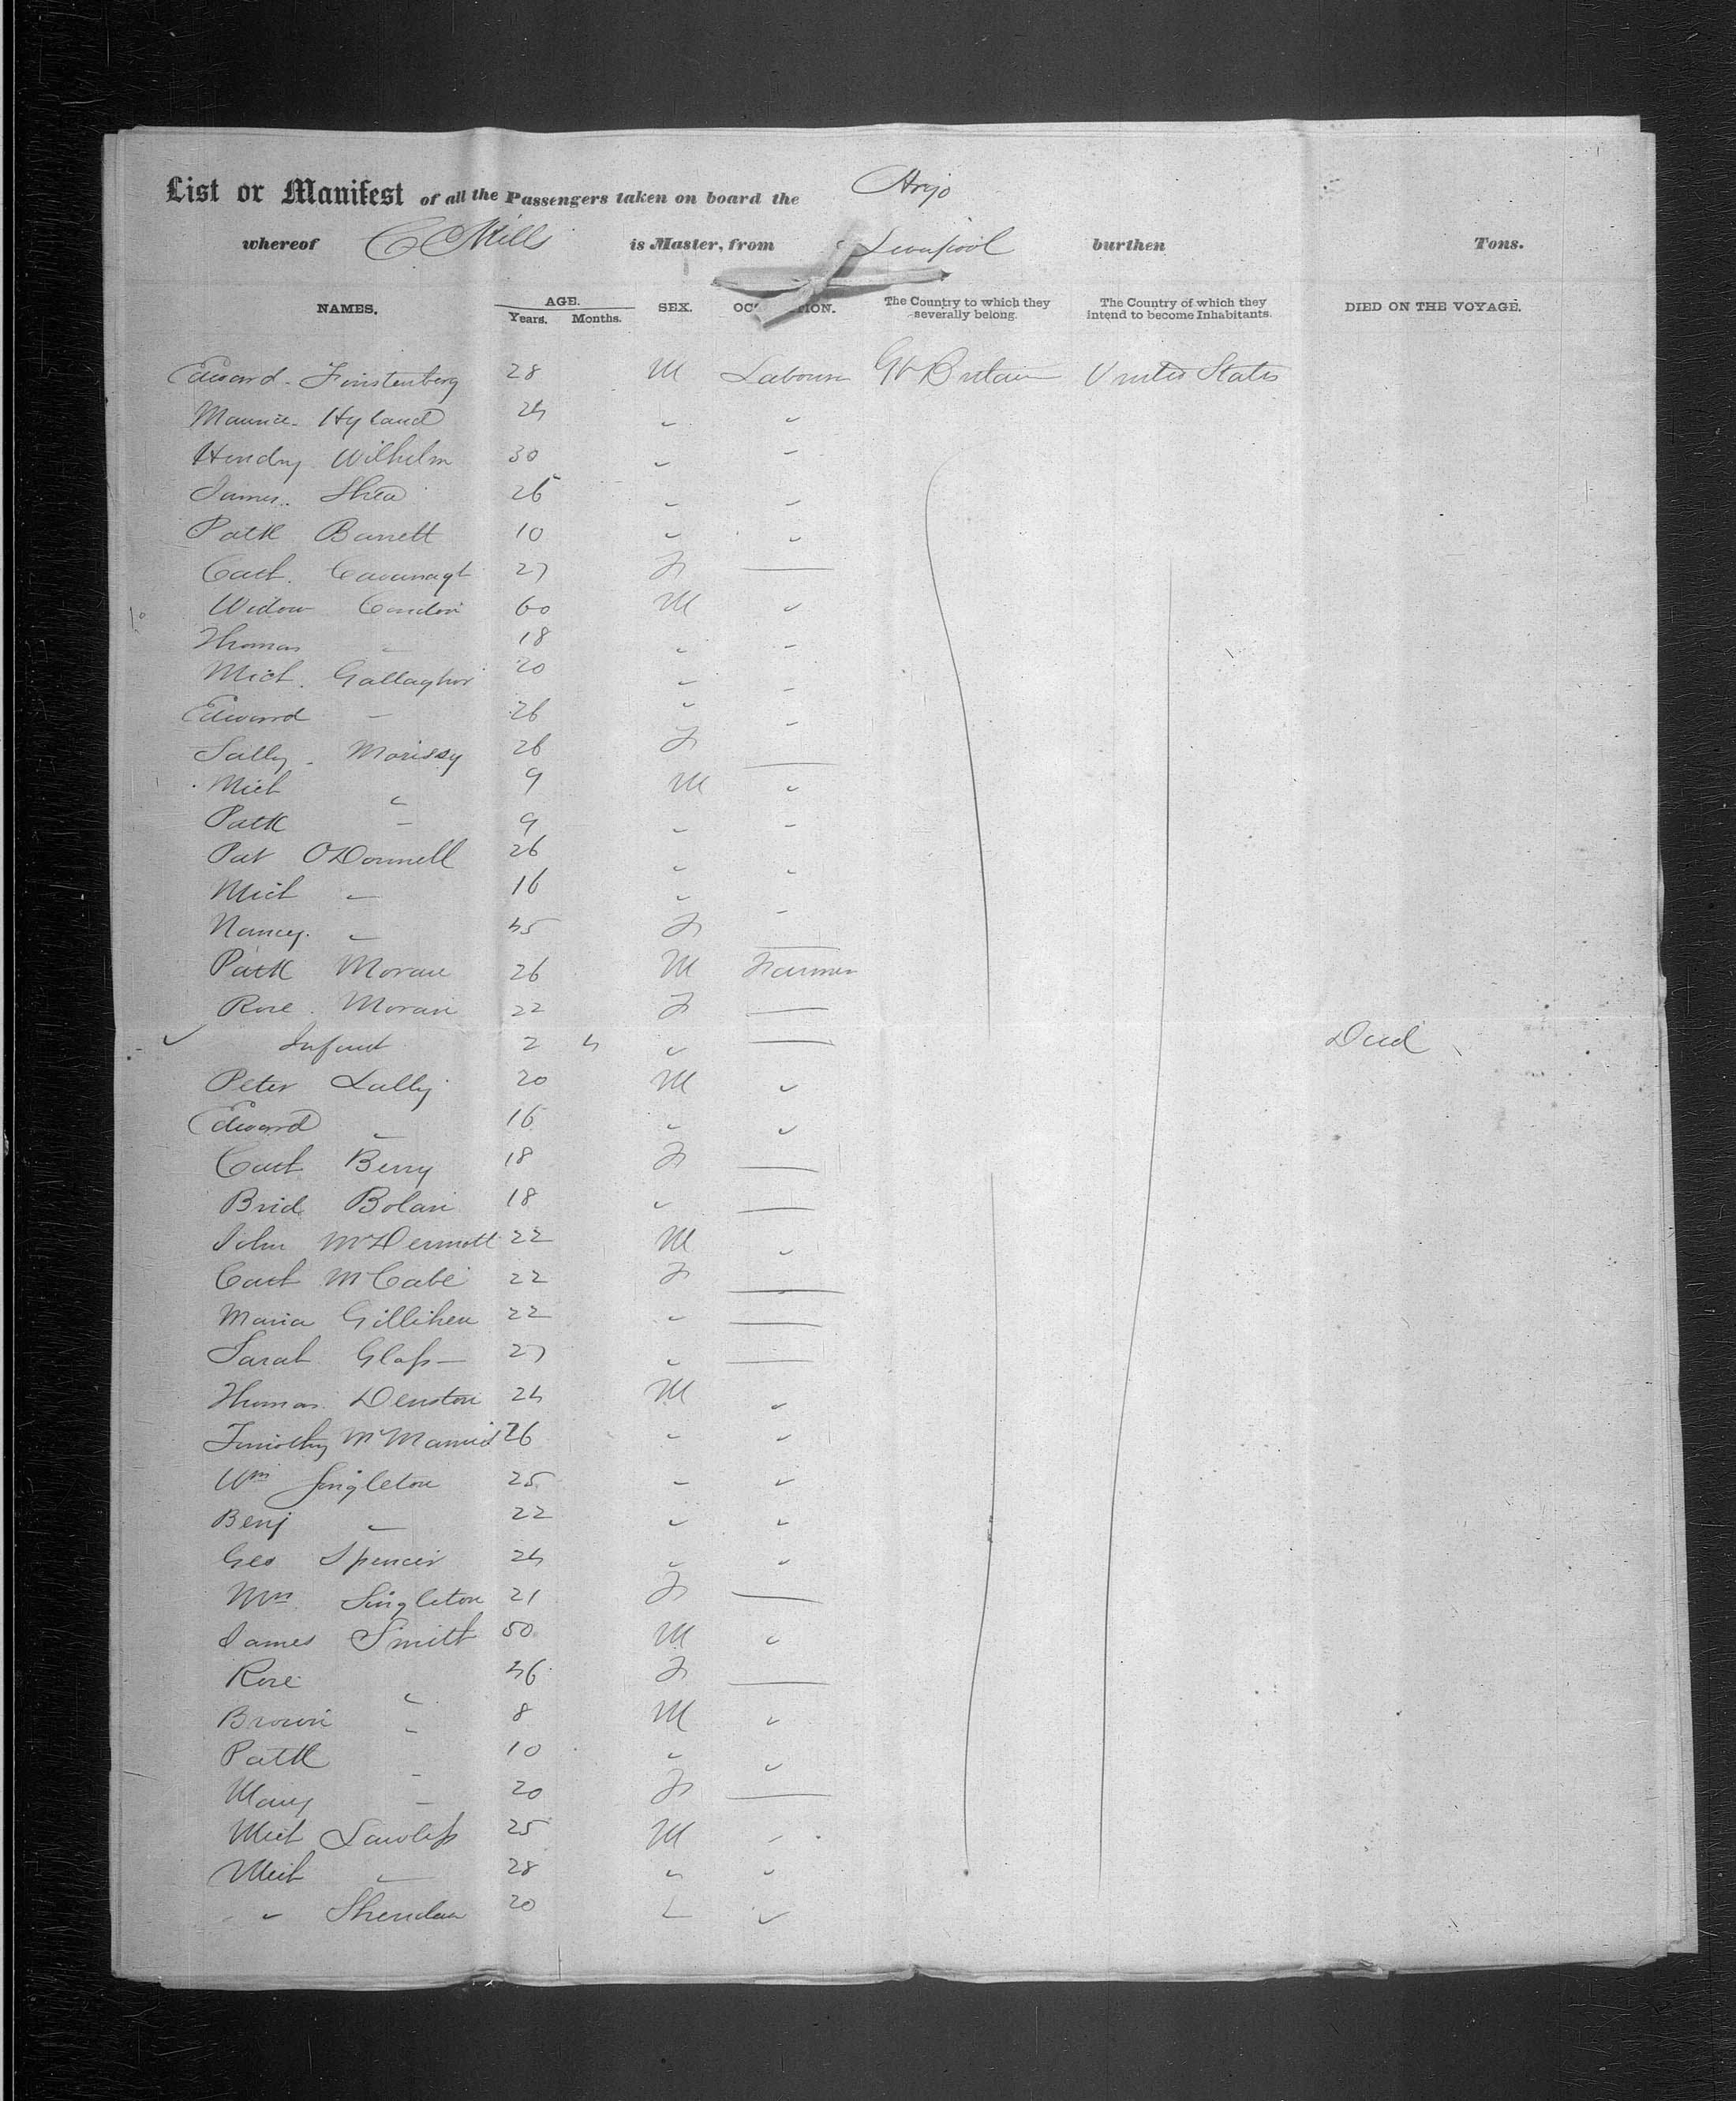 List or Manifest of all the Passengers taken on board the Arijo
whereof C Mills is Master, from Liverpool burthen Tons.
NAMES. AGE. Years. Months. SEX. OCC TION. The Country to which they severally belong. The Country of which they intend to become Inhabitants. DIED ON THE VOYAGE.
Edward Finstenberg 28 M Labourer Gt Britain United States
Maurice Hyland 24 " "
Hendry Wilhelm 30 " "
James Shea 26 " "
Patk Barrett 10 " "
Cath. Cavanagh 27 F —
Widow Condon 60 M "
Thomas " 18 " "
Mich. Gallagher 20 " "
Edward " 26 " "
Sally Morissy 26 F —
Mich " 9 M "
Patk " 9 " "
Pat ODonnell 26 " "
Mich " 16 " "
Nancy " 45 F —
Patk Moran 26 M Farmer
Rose Moran 22 F —
Infant 2 4 " — Died
Peter Lally 20 M "
Edward " 16 " "
Cath Berry 18 F —
Brid Bolan 18 " —
John McDermott 22 M "
Cath McCabe 22 F —
Maria Gillihen 22 " —
Sarah Glass 27 " —
Thomas Denston 24 M "
Timothy 26 " "
Wm Singleton 25 " "
Benj " 22 " "
Geo Spencer 24 " "
Mrs Singleton 21 F —
James Smith 50 M "
Rose " 46 F —
Brown " 8 M "
Patk " 10 " "
Mary " 20 F —
Mich Lawless 25 M "
Mich " 28 " "
" Sheridan 20 " "